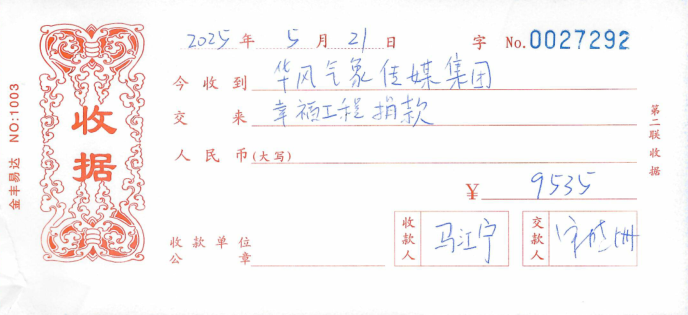 收据
金丰易达 NO:1003
2025 年 5 月 21 日 字 No.0027292
今收到 华风气象传媒集团
交来 幸福工程捐款
人民币(大写)
¥ 9535
收款单位公章
收款人 马江宁
交款人
第二联收据